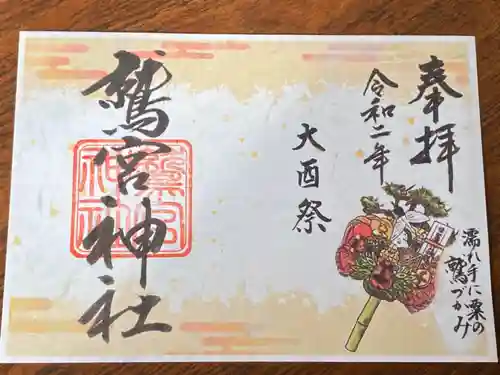 奉拝
令和二年
大酉祭
濡れ手に粟の
鷲づかみ
鷲宮神社
鷲宮
神社